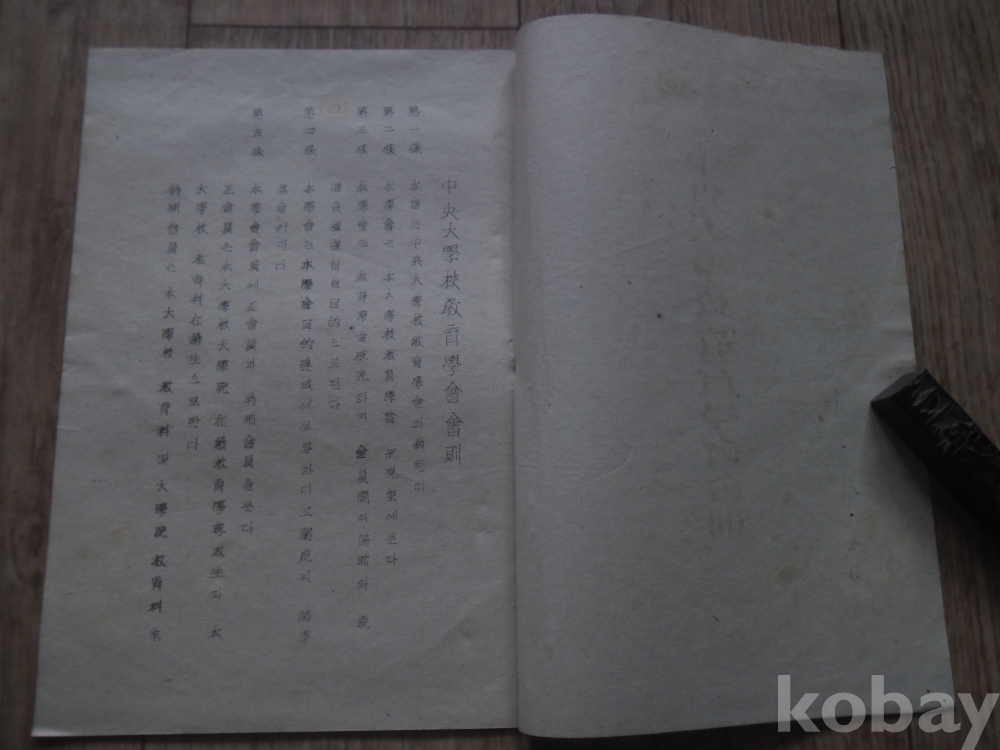 中央大學校敎育學會會則
第一條 本會는 中央大學校敎育學會라 稱한다
第二條 本學會는 本大學校敎育學 硏究室에 둔다
第三條 本學會는 敎育學을 硏究하며 會員間의
을 目的으로 한다
第四條 本學會는 本學會目的達成에 必要하다고 認定된
第五條 本學會會員에 正會員과 特別會員을 둔다
正會員은 本大學校大學院 在籍敎育學專攻生과 本
大學校 敎育科在籍生으로 한다
特別會員은 本大學校 敎育科 및 大學院 敎育科
kobay